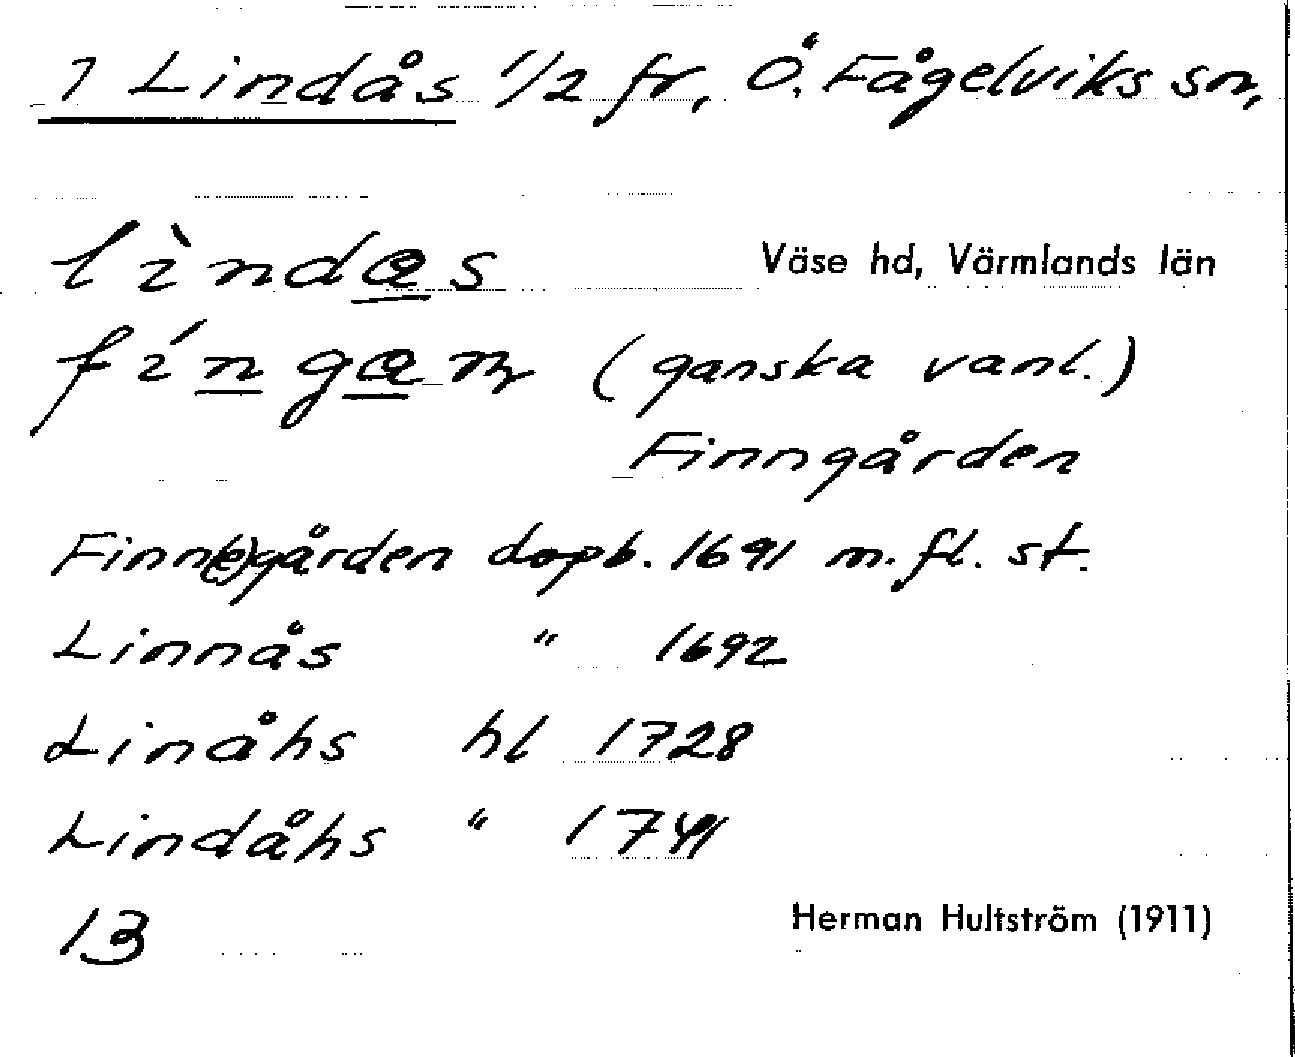 1 Lindås 1/2 fr, Ö. Fågelviks sn,
Väse hd, Värmlands län
(ganska vanl.)
Finngården
Finn(e)gården dopb. 1691 m. fl. st.
Linnås " 1692
Linåhs hl 1728
Lindåhs " 1741
13
Herman Hultström (1911)